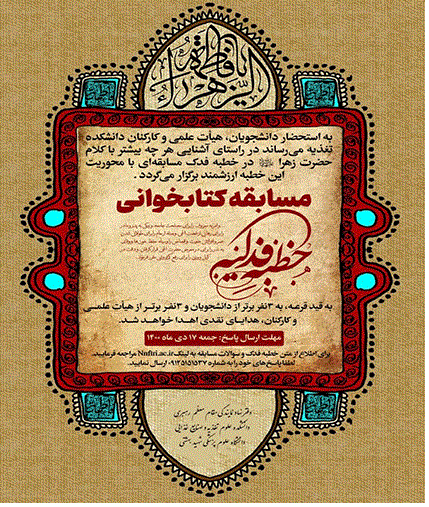 یا فاطمة الزهراء
به استحضار دانشجویان، هیأت علمی و کارکنان دانشکده
تغذیه می‌رساند در راستای آشنایی هر چه بیشتر با کلام
حضرت زهرا در خطبه فدک مسابقه‌ای با محوریت
این خطبه ارزشمند برگزار می‌گردد.
مسابقه کتابخوانی
خطبه فدکیه
به قید قرعه، به ۳نفر برتر از دانشجویان و ۳نفر برتر از هیأت علمی
و کارکنان، هدایای نقدی اهدا خواهد شد.
مهلت ارسال پاسخ: جمعه ۱۷ دی ماه ۱۴۰۰
برای اطلاع از متن خطبه فدک و سوالات مسابقه به لینک Nnftri.ac.ir مراجعه فرمایید.
لطفا پاسخ‌های خود را به شماره ۰۹۱۲۵۱۵۱۵۳۷ ارسال نمایید.
دفتر نهاد نمایندگی مقام معظم رهبری
دانشکده علوم تغذیه و صنایع غذایی
دانشگاه علوم پزشکی شهید بهشتی